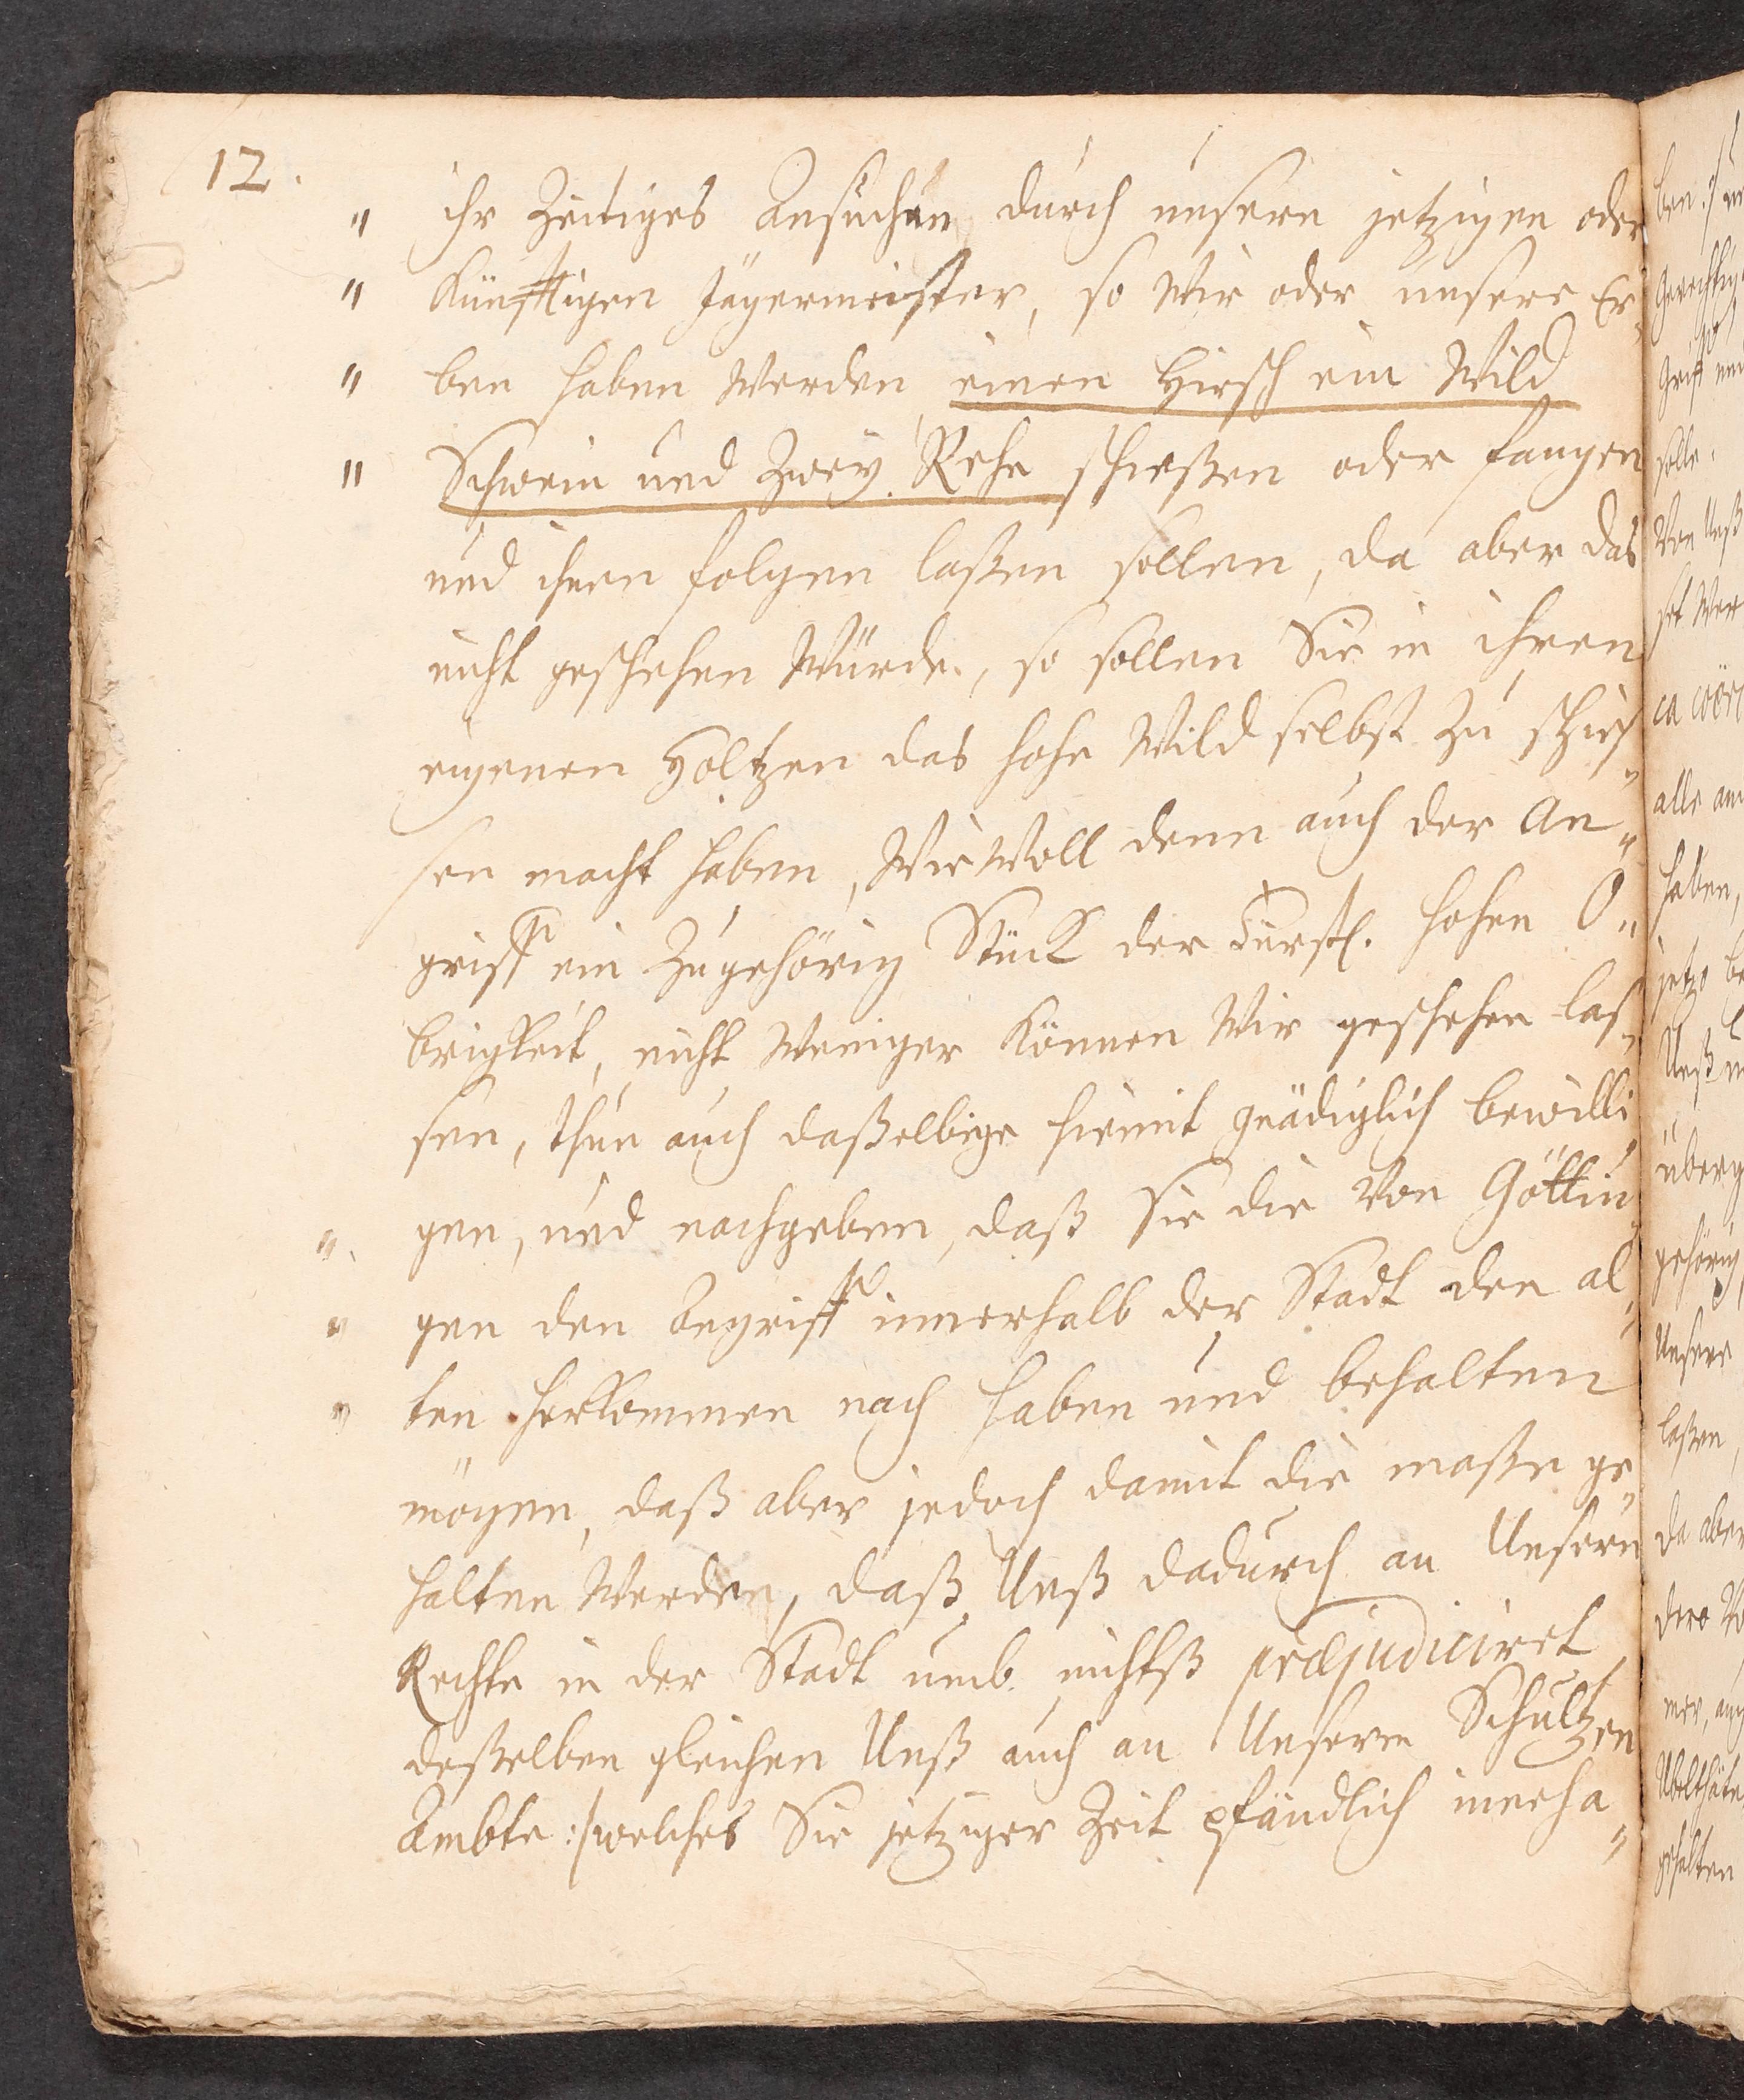 12.
" ihr Zeitiges Ansuchen durch unsern jetzigen oder
" Künfftigen Jägermeister, so Wir oder unsere Er„
" ben haben Werden, einen Hirsch ein Wild
" Schwein und Zwey Rehe schießen oder fangen
und ihnen folgen laßen sollen, da aber das
nicht geschehen Würde, so sollen Sie in ihren
eigenen Höltzen das hohe Wild selbst zu schies„
sen macht haben, WieWoll denn auch der An„
griff ein Zugehörig Stück der Fürstl. hohen O„
brigkeit, nicht Weniger Können Wir geschehen las„
sen, thun auch daßelbige hiemit gnädiglich bewilli„
" gen, und nachgeben, daß Sie die Von Göttin„
" gen den Angriff innerhalb der Stadt den al„
" ten herkommen nach haben und behalten
mögen, daß aber jedoch damit die maße ge„
halten Werden, daß Unß dadurch an Unsern
Rechte in der Stadt umb nichtß præjudiciret
deßelben gleichen Unß auch an Unserm Schultzen
Ambte :/welches Sie jetziger Zeit pfändlich inneha„
ben :/
alle
haben,
jetzo
gehörig,
Unsere
laßen,
da aber
gehalten